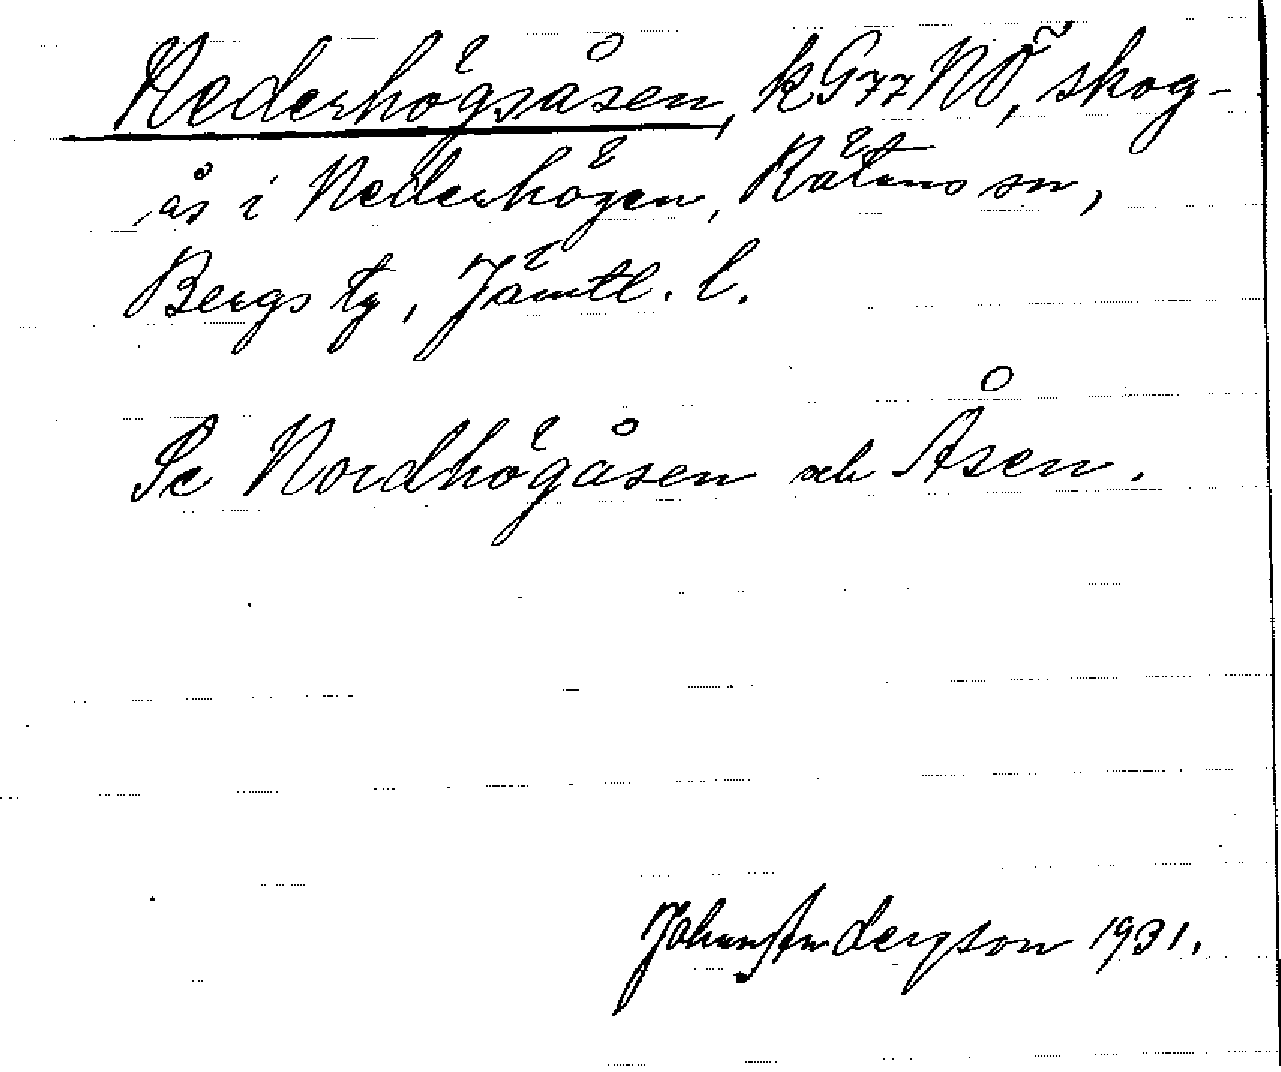 Nederhögsåsen, k G 77 NÖ, skog-
ås i Nederhögen, Rätans sn,
Bergs tg, Jämtl. l.
Se Nordhögåsen och Åsen.
Johan Andersson 1931.